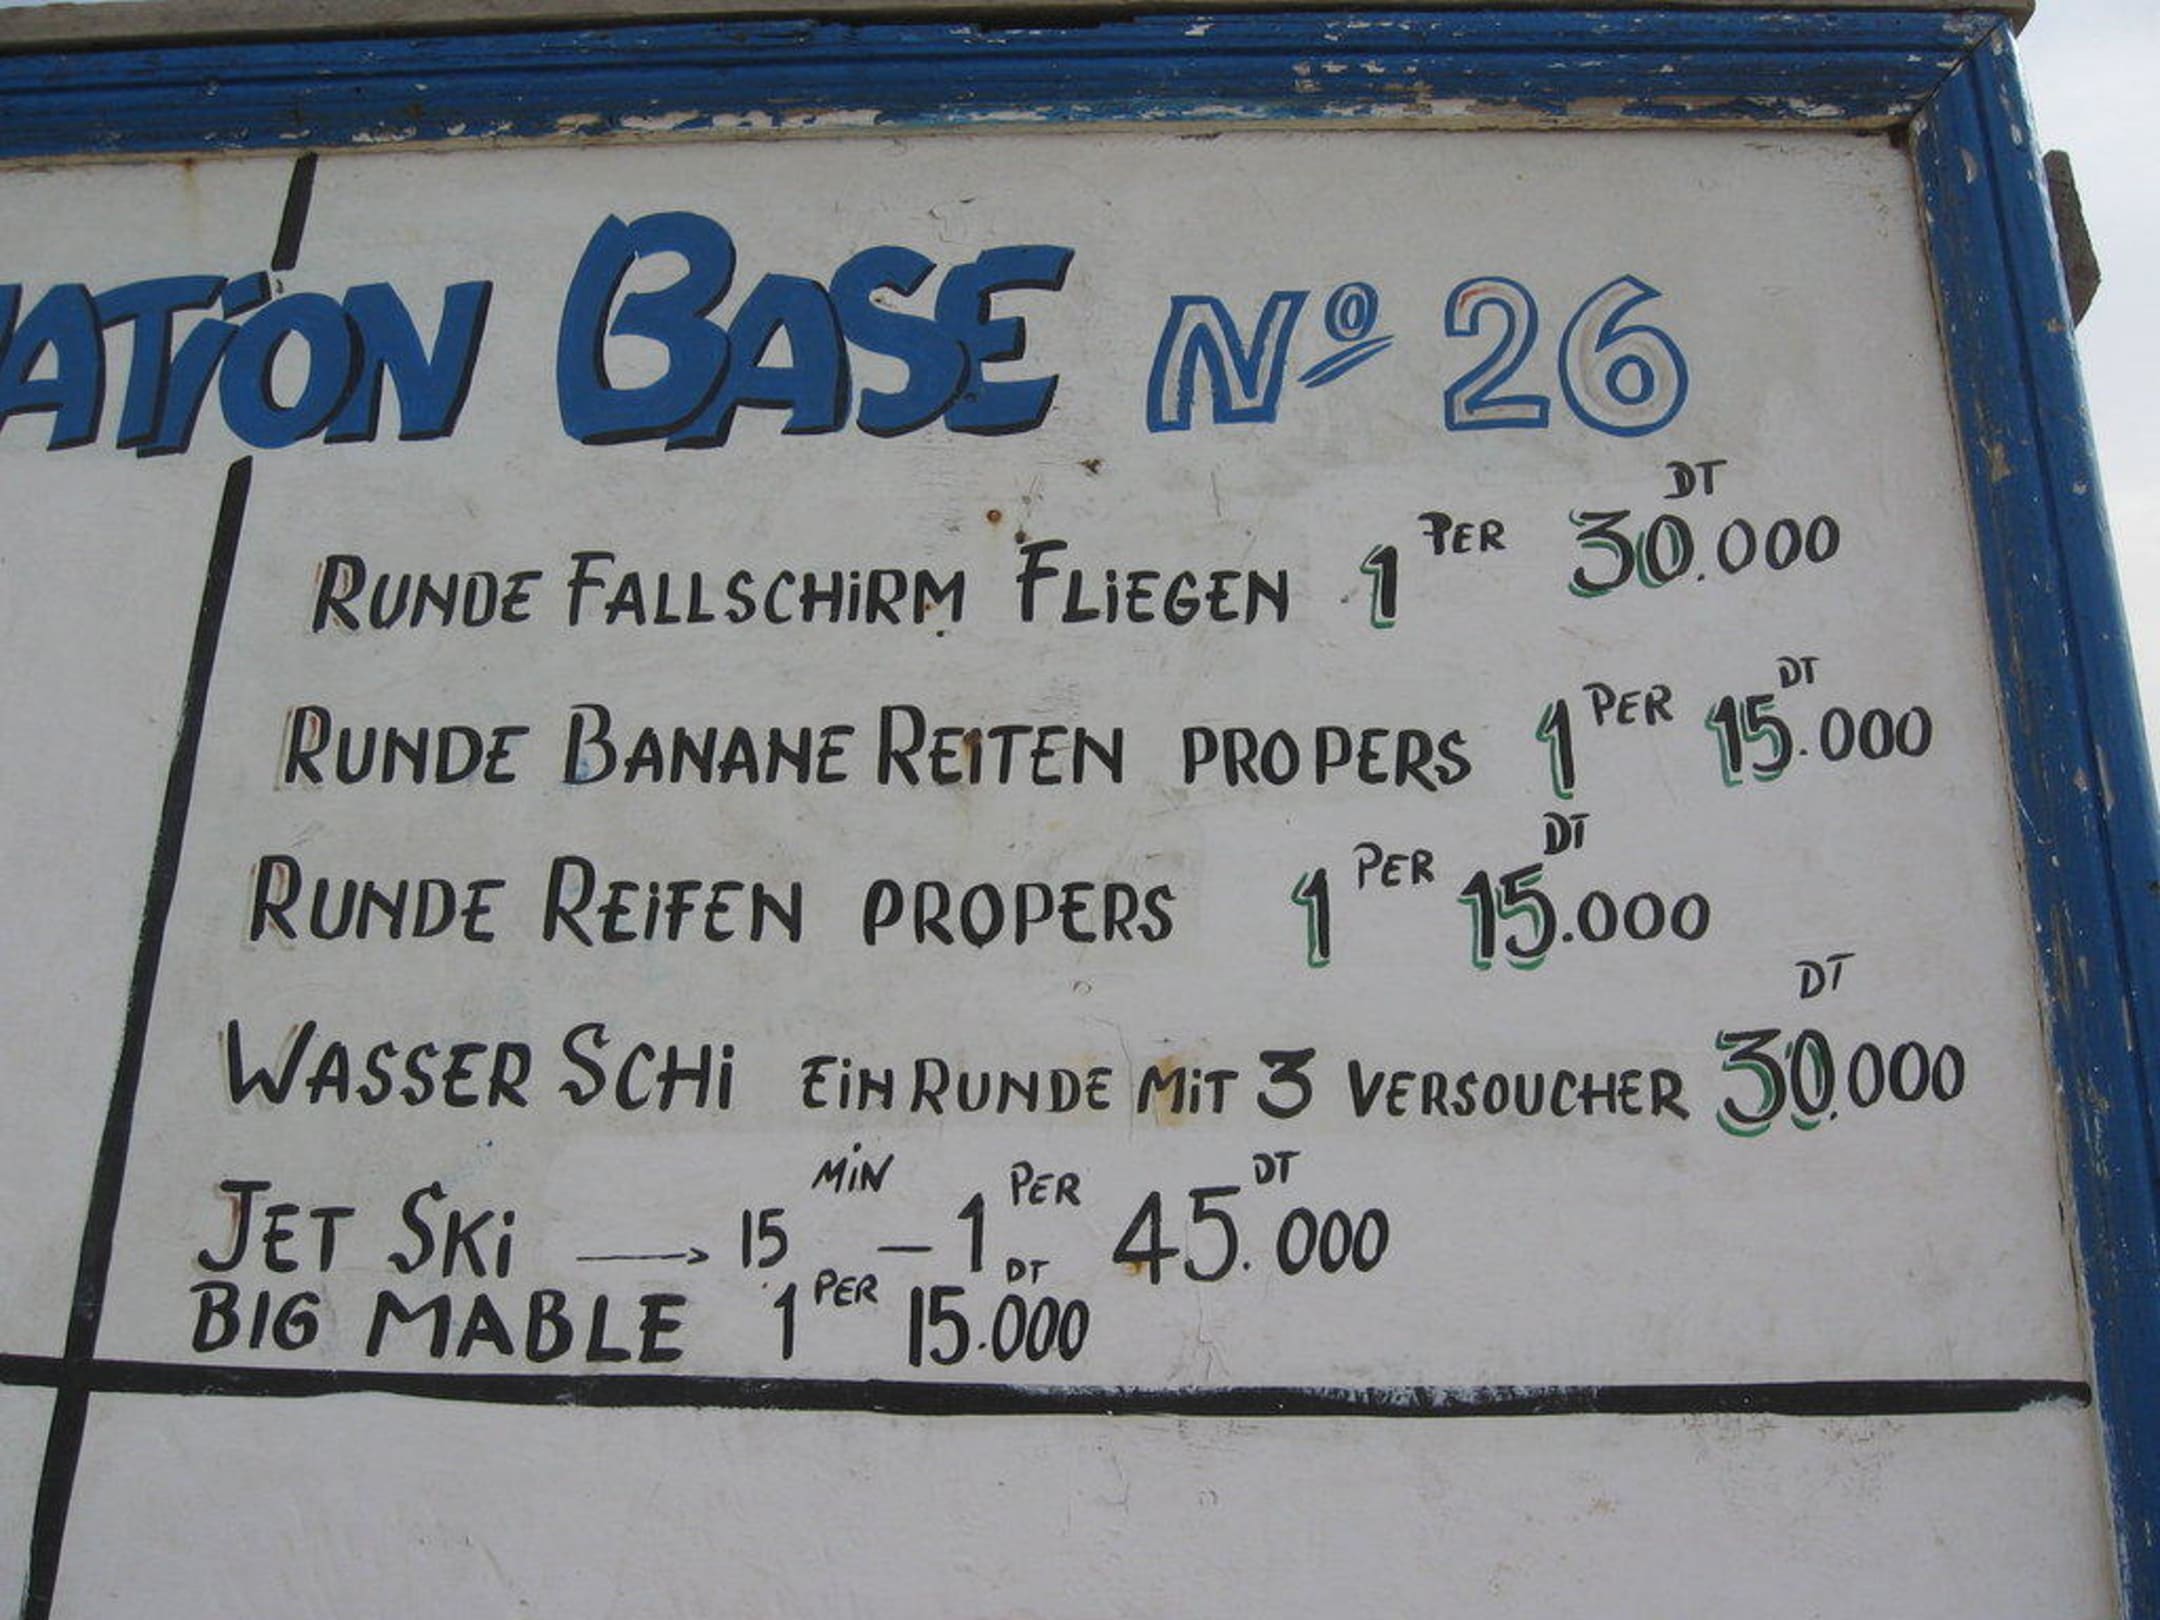 ATION BASE Nº 26
RUNDE FALLSCHIRM FLIEGEN 1 PER 30.000 DT
RUNDE BANANE REITEN PROPERS 1 PER 15.000 DT
RUNDE REIFEN PROPERS 1 PER 15.000 DT
WASSER SCHI EIN RUNDE MIT 3 VERSOUCHER 30.000 DT
JET SKI → 15 MIN – 1 PER 45.000 DT
BIG MABLE 1 PER 15.000 DT